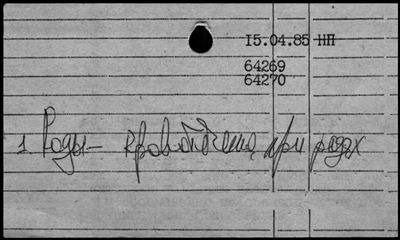 15.04.85 НП
64269
64270
1 Роды — кровотечение при родах